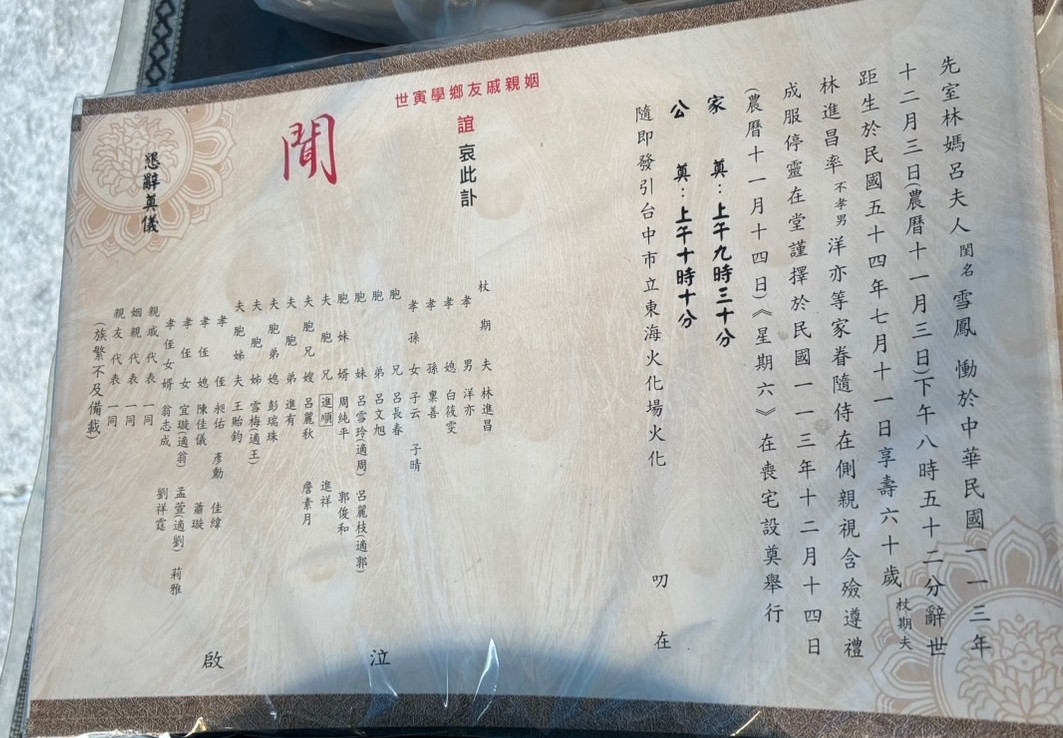 先室林媽呂夫人閨名雪鳳 慟於中華民國一一三年
十二月三日(農曆十一月三日)下午八時五十二分辭世
距生於民國五十四年七月十一日享壽六十歲杖期夫
林進昌率不孝男洋亦等家眷隨侍在側親視含殮遵禮
成服停靈在堂謹擇於民國一一三年十二月十四日
(農曆十一月十四日)《星期六》在喪宅設奠舉行
家 奠:上午九時三十分
公 奠:上午十時十分
隨即發引台中市立東海火化場火化 叨在
姻親戚友鄉學寅世
誼 哀此訃
聞
杖期夫 林進昌
孝男 洋亦
孝媳 白筱雯
孝孫 稟善
孝孫女 子云 子晴
胞兄 呂長春
胞弟 呂文旭
胞妹 呂雪玲(適周) 呂麗枝(適郭)
胞妹婿 周純平 郭俊和
夫胞兄 進順 進祥
夫胞兄嫂 呂麗秋 詹素月
夫胞弟 進有
夫胞弟媳 彭瑞珠
夫胞姊 雪梅(適王)
夫胞姊夫 王貽鈞
孝侄 昶佑 彥勳 佳緯
孝侄媳 陳佳儀 蕭璇
孝侄女 宜璇(適翁) 孟萱(適劉) 莉雅
孝侄女婿 翁志成 劉祥霆
親戚代表 一同
姻親代表 一同
親友代表 一同
(族繁不及備載)
泣
啟
懇辭奠儀